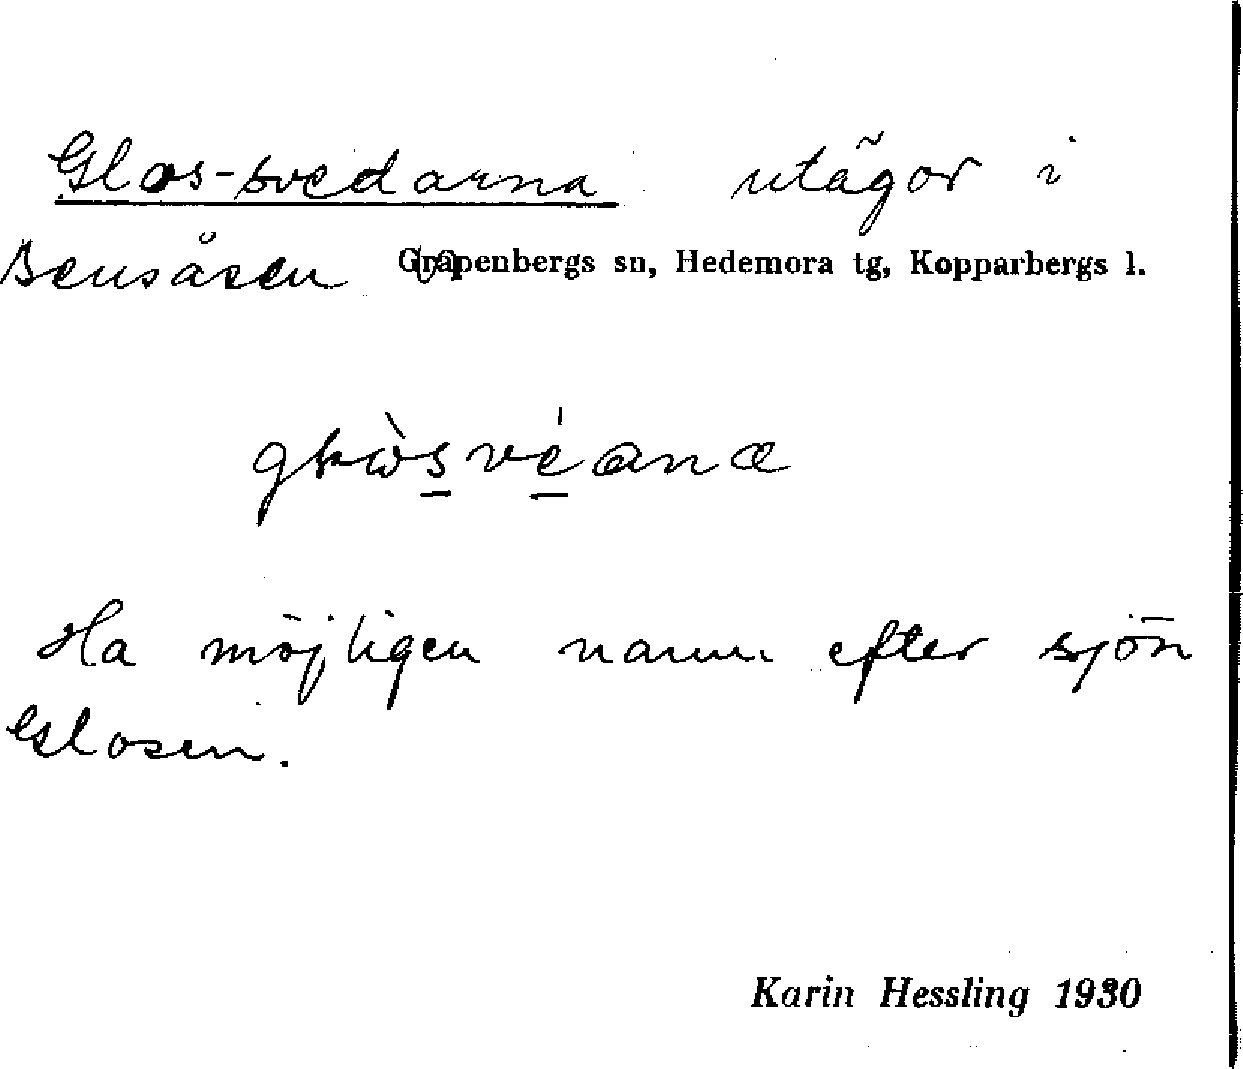 Glos-svedarna utägor i
Bensåsen Grapenbergs sn, Hedemora tg, Kopparbergs l.
Ha möjligen namn efter sjön
Glosen.
Karin Hessling 1930